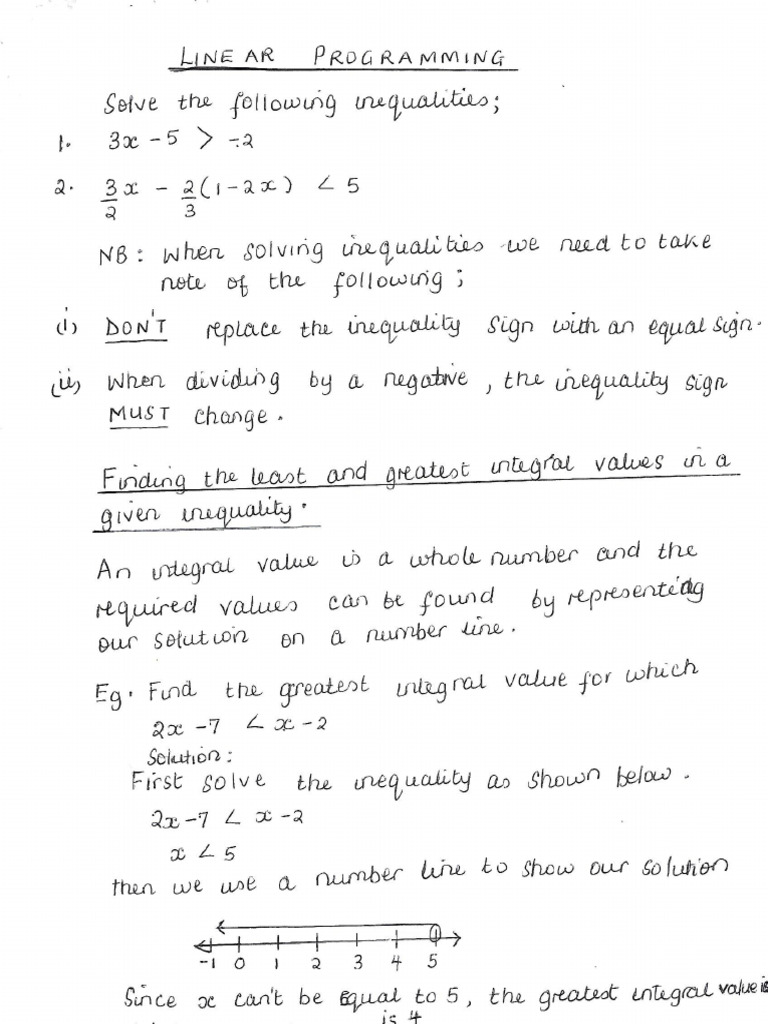 LINEAR PROGRAMMING
Solve the following inequalities;
1. 3x - 5 > -2
2. 3/2 x - 2/3 (1 - 2x) < 5
NB: When solving inequalities we need to take
note of the following;
(i) DON'T replace the inequality sign with an equal sign.
(ii) When dividing by a negative, the inequality sign
MUST change.
Finding the least and greatest integral values in a
given inequality.
An integral value is a whole number and the
required values can be found by representing
our solution on a number line.
Eg. Find the greatest integral value for which
2x - 7 < x - 2
Solution:
First solve the inequality as shown below.
2x - 7 < x - 2
x < 5
then we use a number line to show our solution
-1 0 1 2 3 4 5
Since x can't be equal to 5, the greatest integral value is
is 4